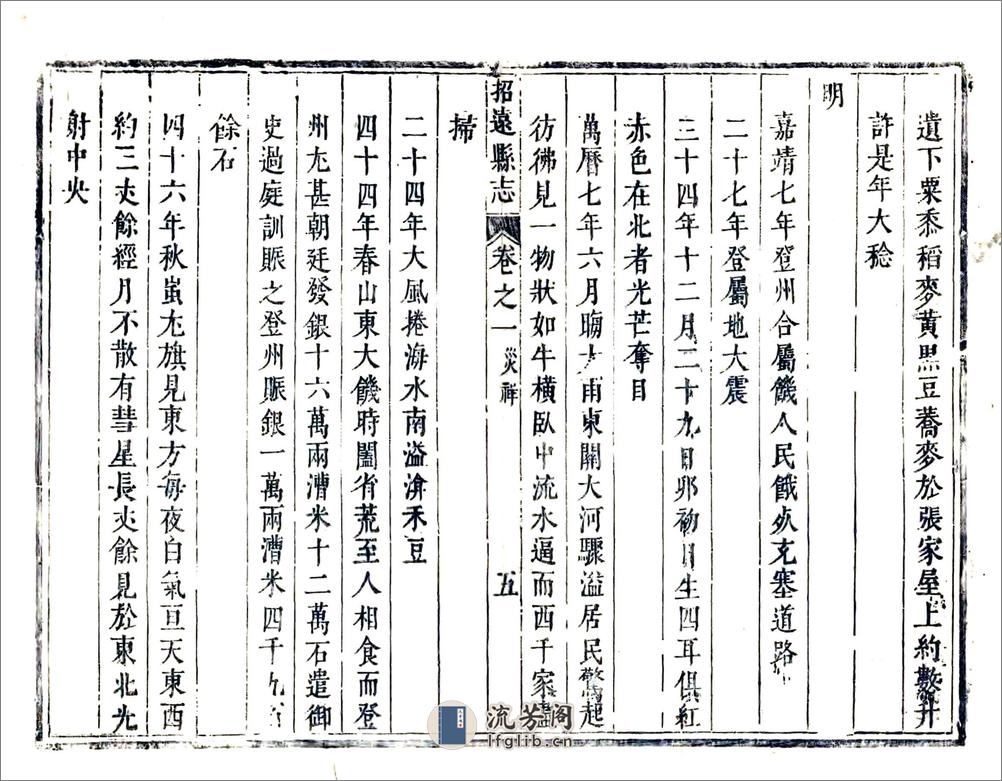 遺下粟黍稻麥黃黑豆蕎麥於張家屋上約數升
許是年大稔
明
嘉靖七年登州合屬饑人民餓死充塞道路
二十七年登屬地大震
三十四年十二月二十九日卯初日生四耳俱紅
赤色在北者光芒奪目
萬曆七年六月暘大雨東關大河驟溢居民驚起
彷彿見一物狀如牛橫臥中流水逼而西千家盡
招遠縣志 卷之一 災祥 五
掃
二十四年大風捲海水南溢渰禾豆
四十四年春山東大饑時闔省荒至人相食而登
州尤甚朝廷發銀十六萬兩漕米十二萬石遣御
史過庭訓賑之登州賑銀一萬兩漕米四千九百
餘石
四十六年秋蚩尤旗見東方每夜白氣亘天東西
約三丈餘經月不散有彗星長丈餘見於東北光
射中央
流芳阁
lfglib.cn